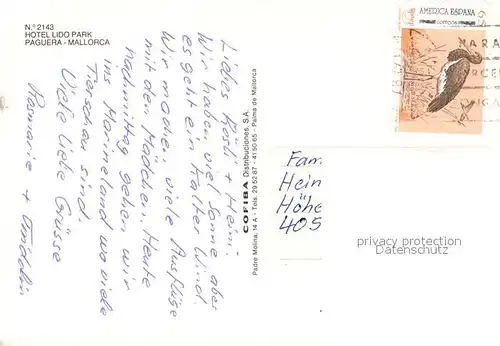 N.º 2143
HOTEL LIDO PARK
PAGUERA - MALLORCA
Liebes Rösli + Heini
Wir haben viel Sonne aber
es geht ein kalter Wind.
Wir machen viele Ausflüge
mit den Mädchen. Heute
nachmittag gehen wir
ins Marineland wo viele
Tierschau sind.
Viele liebe Grüsse
Rosmarie +
COFIBA Distribuciones, S.A.
Padre Molina, 14 A - Tels. 29 52 87 - 41 50 65 - Palma de Mallorca
AMERICA ESPAÑA
correos
Fam
Hein
Höhe
405
privacy protection
Datenschutz